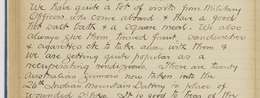 We have quite a lot of visits from Military
Officers who come aboard & have a good
hot salt bath & a square meal. We also
always give them tinned fruit, sandwiches
& cigarettes etc to take away with them &
we are getting quite popular as a
recuperating
There are twenty
Australian gunners now taken into the
26th Indian Mountain Battery in place of
wounded
It is good to hear of the